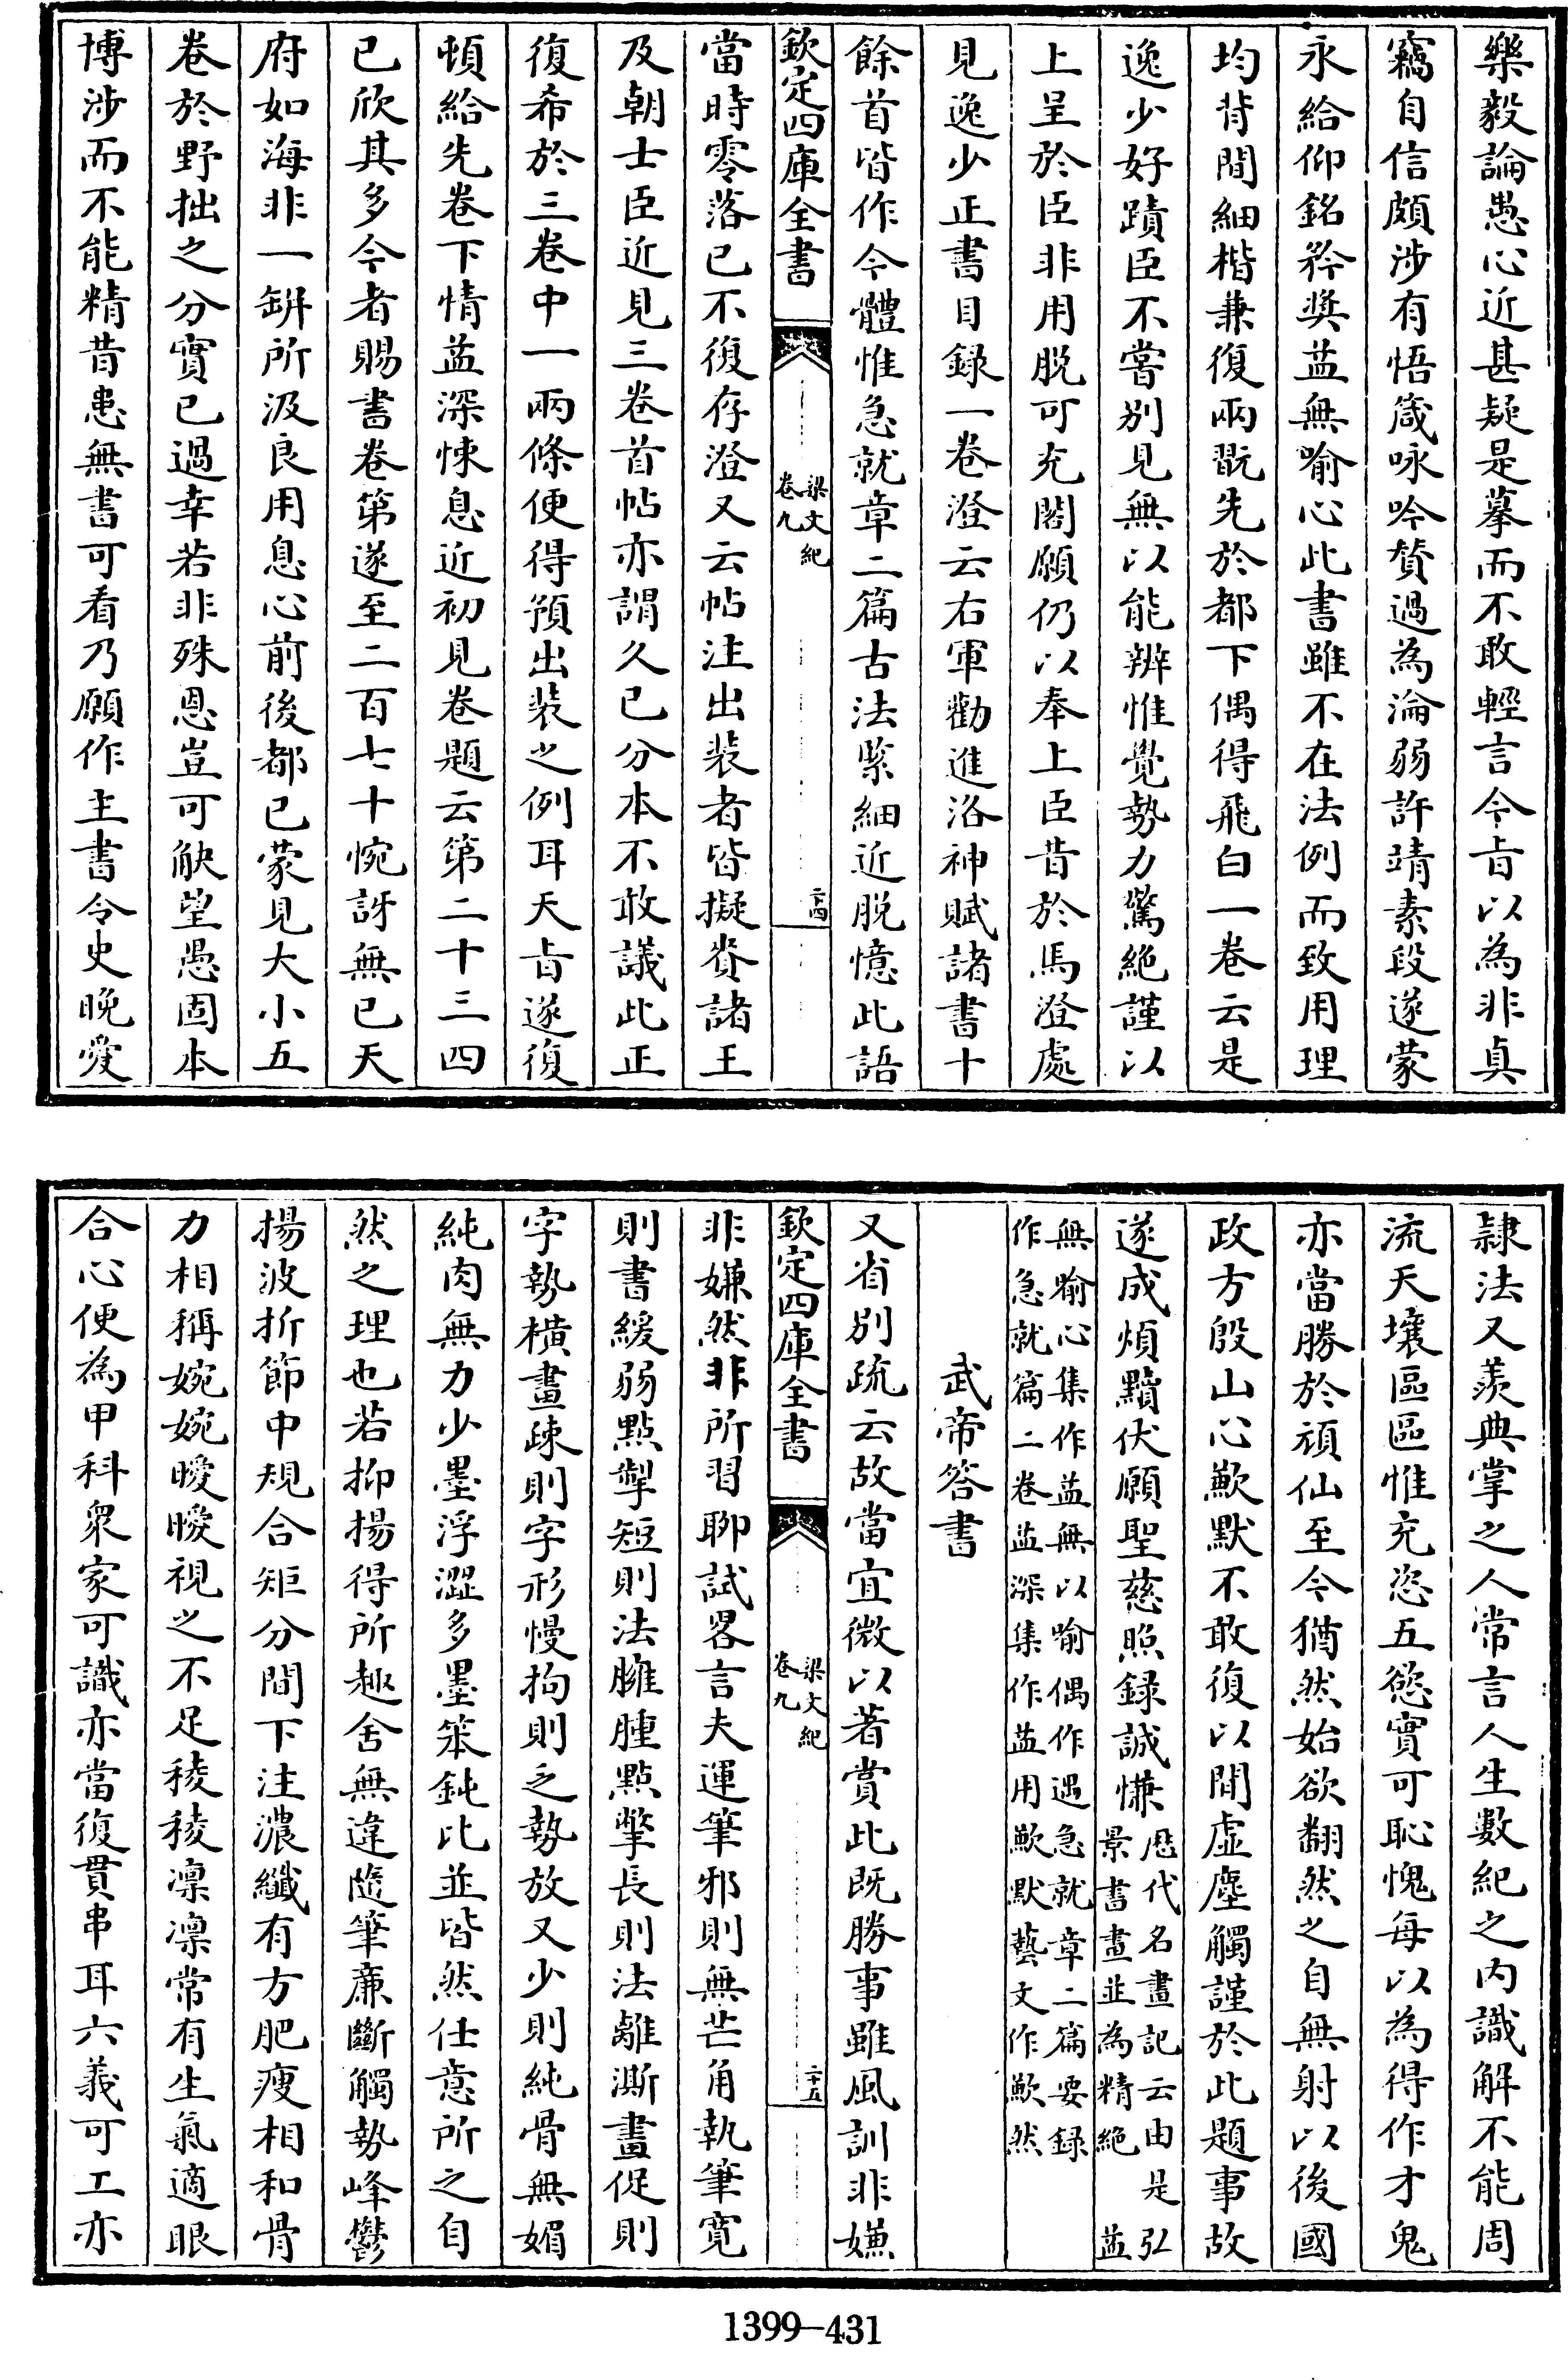 樂毅論愚心近甚疑是摹而不敢輕言今旨以為非真
竊自信頗涉有悟箴咏吟贊過為淪弱許靖素段遂蒙
永給仰銘矜奬益無喻心此書雖不在法例而致用理
均背間細楷兼復兩翫先於都下偶得飛白一卷云是
逸少好蹟臣不嘗別見無以能辨惟覺勢力驚絶謹以
上呈於臣非用脱可充閣願仍以奉上臣昔於馬澄處
見逸少正書目録一卷澄云右軍勸進洛神賦諸書十
餘首皆作今體惟急就章二篇古法緊細近脱憶此語
欽定四庫全書
梁文紀
卷九
二十四
當時零落已不復存澄又云帖注出装者皆擬賫諸王
及朝士臣近見三卷首帖亦謂久已分本不敢議此正
復希於三卷中一兩條便得預出装之例耳天旨遂復
頓給先卷下情益深悚息近初見卷題云第二十三四
已欣其多今者賜書卷第遂至二百七十惋訝無已天
府如海非一缾所汲良用息心前後都已蒙見大小五
卷於野拙之分實已過幸若非殊恩豈可觖望愚固本
博涉而不能精昔患無書可看乃願作主書令史晚愛
隸法又羨典掌之人常言人生數紀之内識解不能周
流天壤區區惟充恣五慾實可恥愧每以為得作才鬼
亦當勝於頑仙至今猶然始欲翻然之自無射以後國
政方殷山心歉默不敢復以閒虚塵觸謹於此題事故
遂成煩黷伏願聖慈照録誠慊
歴代名畫記云由是弘
景書畫並為精絶 益
無喻心集作益無以喻偶作遇急就章二篇要録
作急就篇二卷益深集作益用歉默藝文作歉然
武帝答書
又省別疏云故當宜微以著賞此既勝事雖風訓非嫌
欽定四庫全書
梁文紀
卷九
二十五
非嫌然非所習聊試畧言夫運筆邪則無芒角執筆寛
則書緩弱點掣短則法臃腫點擎長則法離澌畫促則
字勢横畫疎則字形慢拘則乏勢放又少則純骨無媚
純肉無力少墨浮澀多墨笨鈍比並皆然任意所之自
然之理也若抑揚得所趣舍無違隨筆亷斷觸勢峰鬱
揚波折節中規合矩分間下注濃纖有方肥瘦相和骨
力相稱婉婉曖曖視之不足稜稜凛凛常有生氣適眼
合心便為甲科衆家可識亦當復貫串耳六義可工亦
1399—431